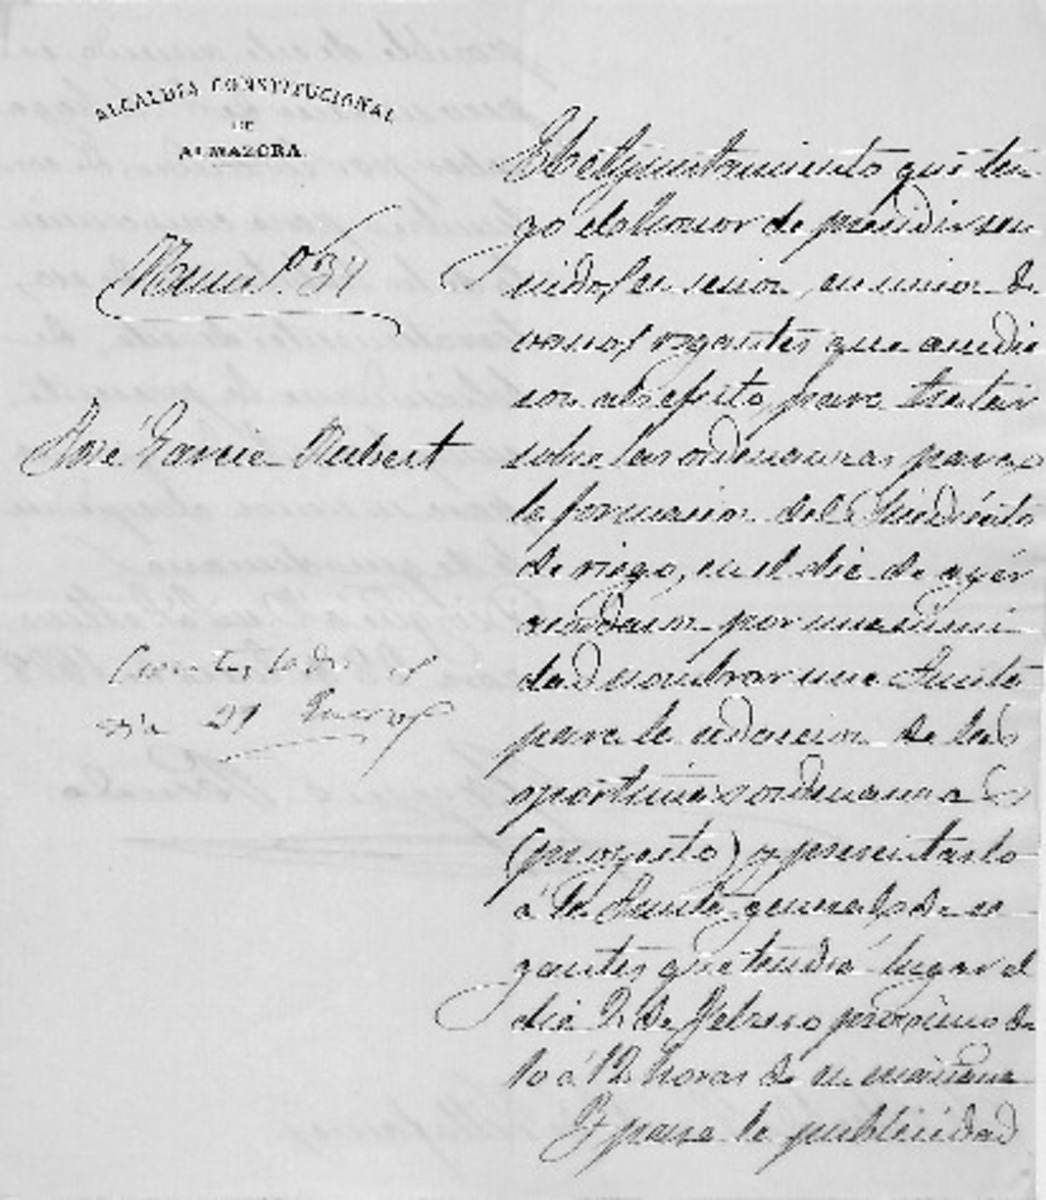 ALCALDÍA CONSTITUCIONAL
DE
ALMAZORA
José García Rubert
Contestado
día 27 Enero
El Ayuntamiento que ten
go el honor de presidir reu
nido en sesión, en union de
varios regantes que acudie
ron al efecto, para tratar
sobre las ordenanzas para
la formacion del Sindicato
de riego, en el dia de ayér
acordaron por unanimi
dad nombrar una Junta
para la redaccion de las
oportunas ordenanzas
(proyecto) y presentarlo
á la Junta general de re
gantes que tendrá lugar el
dia 2 de Febrero próximo de
10 á 12 horas de su mañana
Y para la publicidad